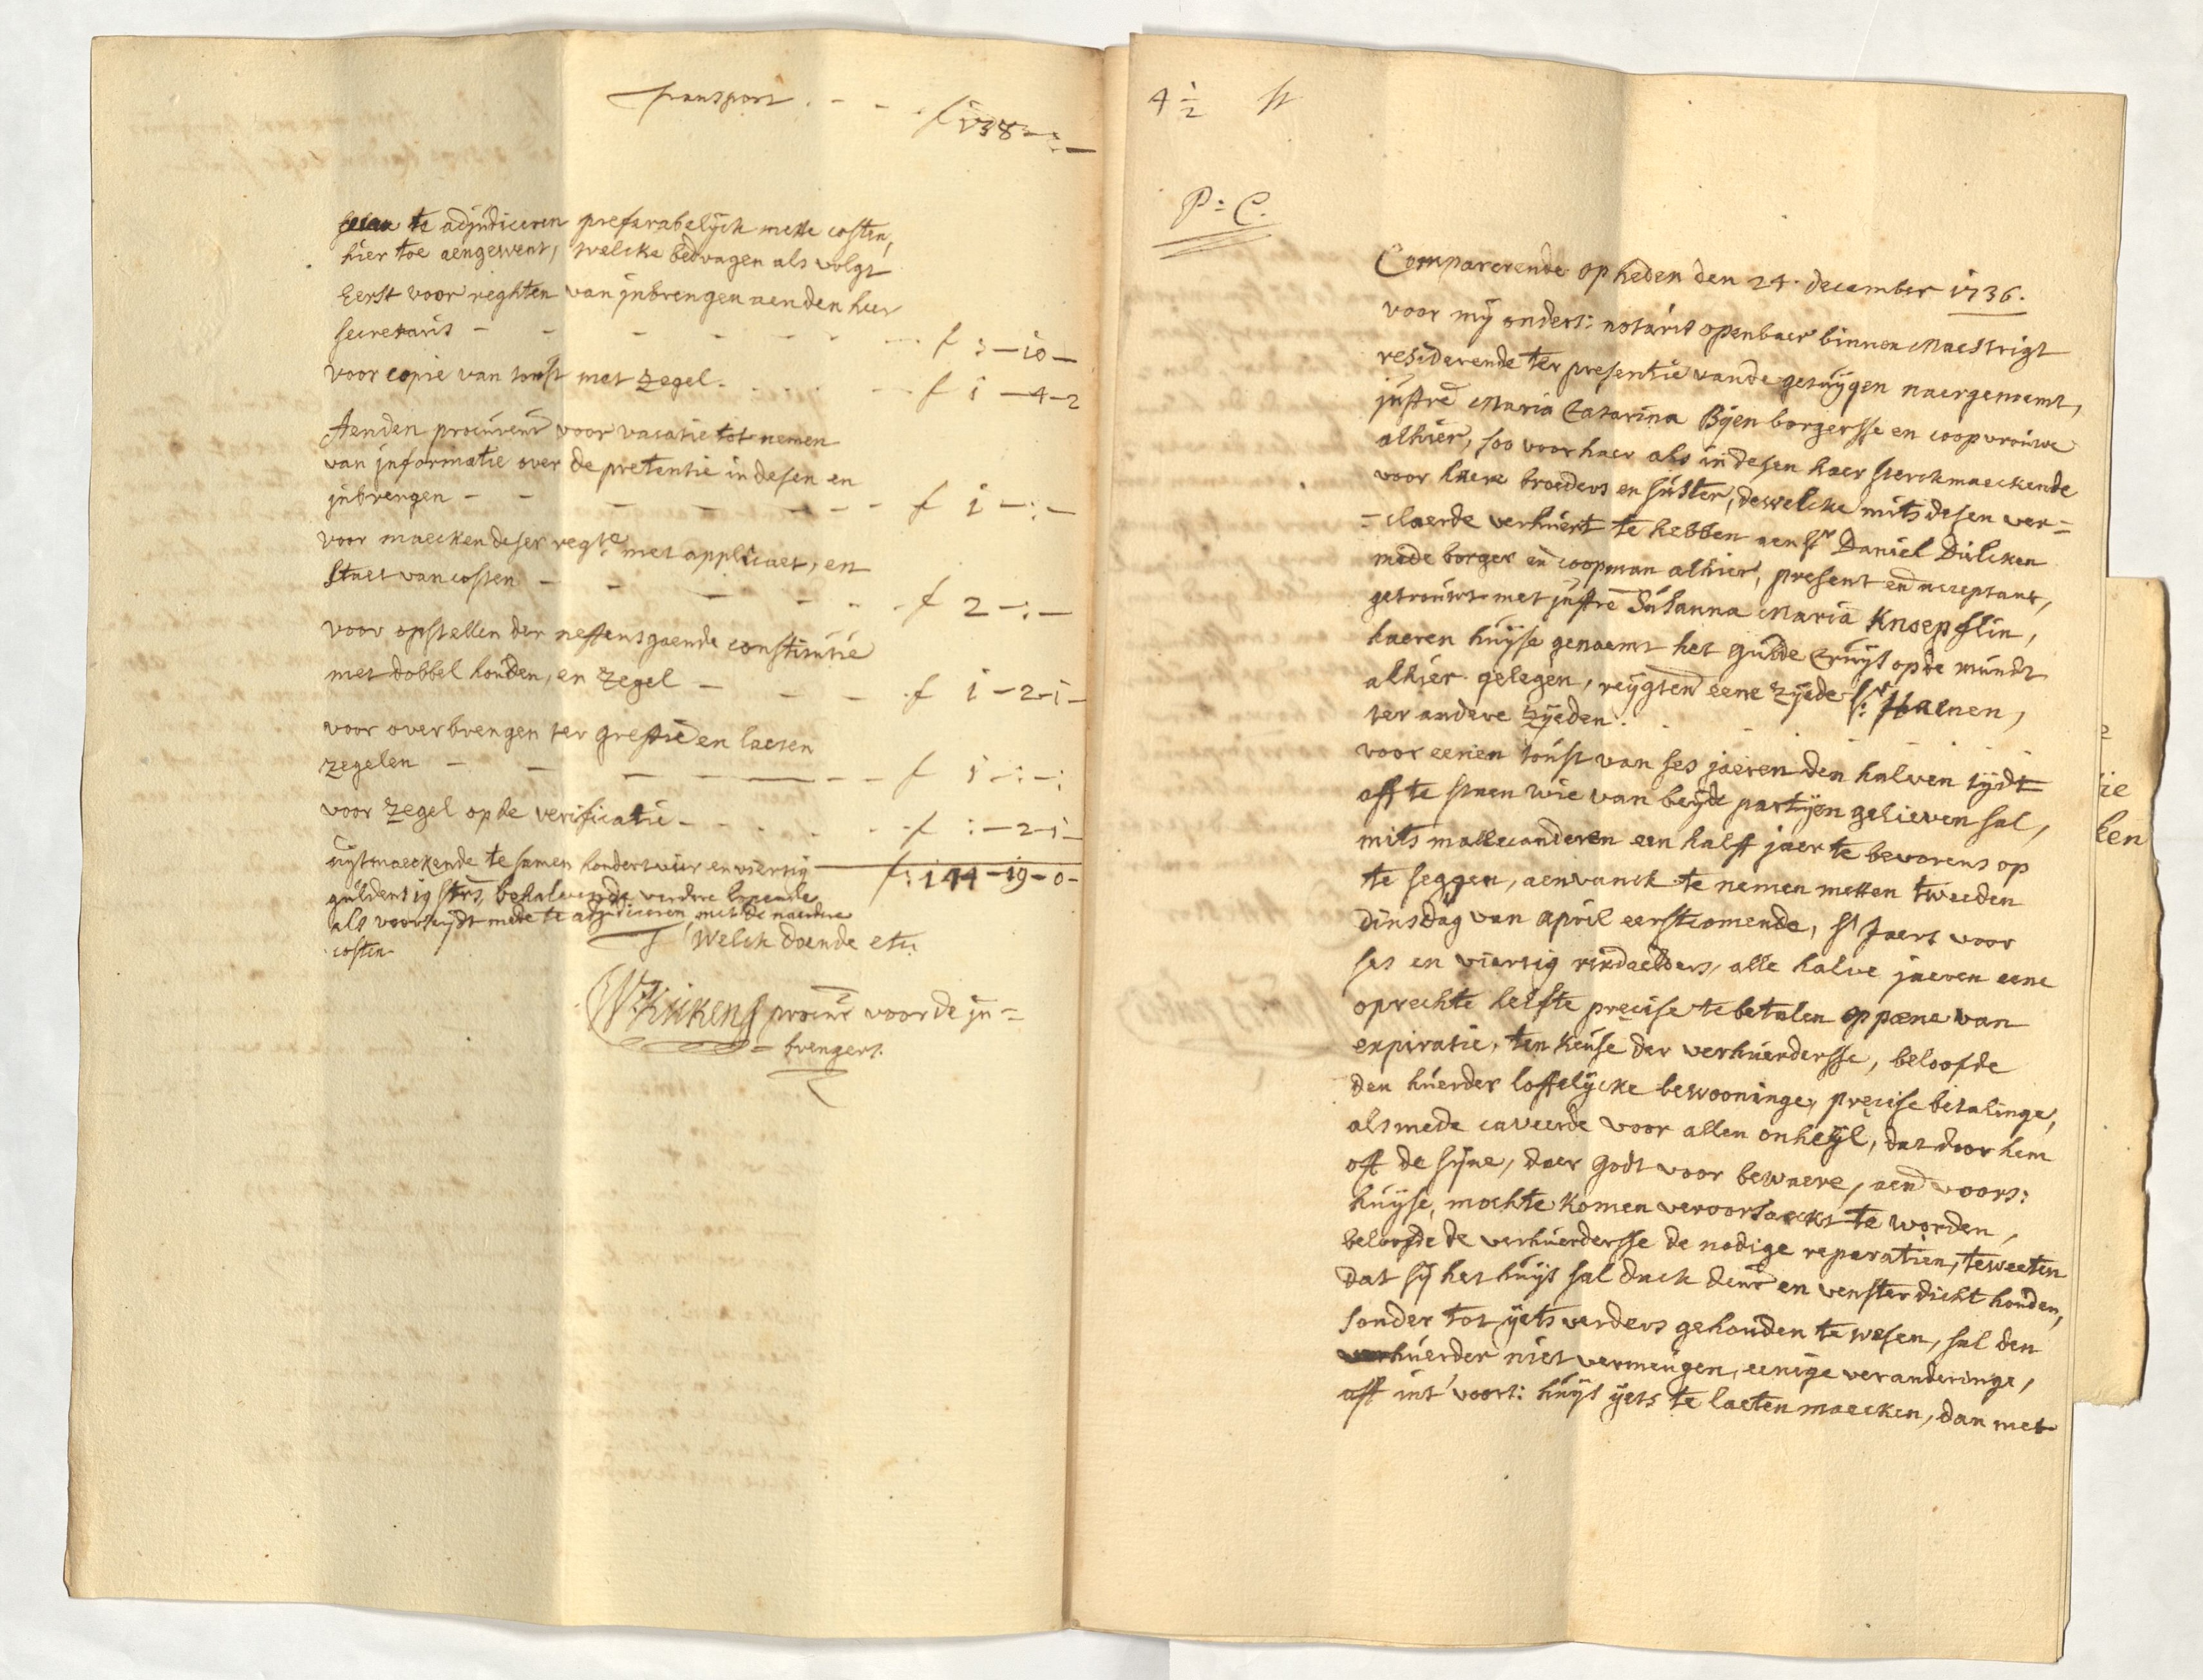 transport . - - . f 138 - : -
te adjudiceren preferabelijck mette costen,
hier toe aengewent, welcke bedragen als volgt
Eerst voor reghten van jnbrengen aenden heer
secretaris - - - - - - f : - 10 -
voor copie van tourst met zegel - . . . - f 1 - 4 - 2
Aenden procureur voor vacatie tot nemen
van jnformatie over de pretentie in desen en
jnbrengen - - - - - - - f 1 - : -
voor maecken deser regte met applicaet, en
staet van costen - - - - - f 2 - : -
voor opstellen der neffensgaende constitutie
met dobbel houden, en zegel - - - - f 1 - 2 - 1 -
voor overbrengen ter greffie en laeten
zegelen - - - - - - f 1 - : - :
voor zegel op de verificatie - - . . . - f : - 2 - 1 -
uijtmaeckende te samen hondert vier en viertig f: 144 - 19 - 0 -
guldens 19 strs, behalvens de verdere loopende
als voorseijdt mede te adjudiceren met de naerdere
costen.
Welck doende etc:
W Kickens procur voor de jn=
=brengers.
4 1/2 st
P: C.
Comparerende op heden den 24. december 1736.
voor mij onders: notaris openbaer binnen Maestrigt
residerende ter presentie vande getuijgen naergenoemt,
juffre Maria Catarina Bijen borgersse en coopvrouwe
alhier, soo voor haer als in desen haer sterckmaeckende
voor haere broeders en suster, dewelcke mits desen ver=
=claerde verhuert te hebben aen sr Daniel Dulcken
mede borger en coopman alhier, present en acceptant,
getrouwt met juffre Susanna Maria Knoepflin,
haeren huijse genaemt het gulde Cruijs op de mundt
alhier gelegen, reijgten eene zijede sr: Haenen,
ter andere zijeden . . . . .
voor eenen tourst van ses jaeren den halven tijdt
aff te staen wie van beijde partijen gelieven sal,
mits malkcanderen een halff jaer te bevorens op
te seggen, aenvanck te nemen metten tweeden
dinsdag van april eerstcomende, st Jaers voor
ses en viertig rixdaelders, alle halve jaeren eene
oprechte helfte precise te betalen op pœne van
expiratie, ten keuse der verhuerdersse, beloofde
den huerder loffelijcke bewooninge, precise betalinge,
als mede caveerde voor allen onheijl, dat door hem
oft de sijne, daer godt voor bewaere, aen voors:
huijse, mochte komen veroorsaeckt te worden,
beloofde de verhuerdersse de nodige reparatien, te weeten
dat sij het huijs sal dack deur en venster dicht houden,
sonder tot ijets verders gehouden te wesen, sal den
huerder niet vermeugen, eenige veranderinge,
oft int voors: huijs ijets te laeten maecken, dan met